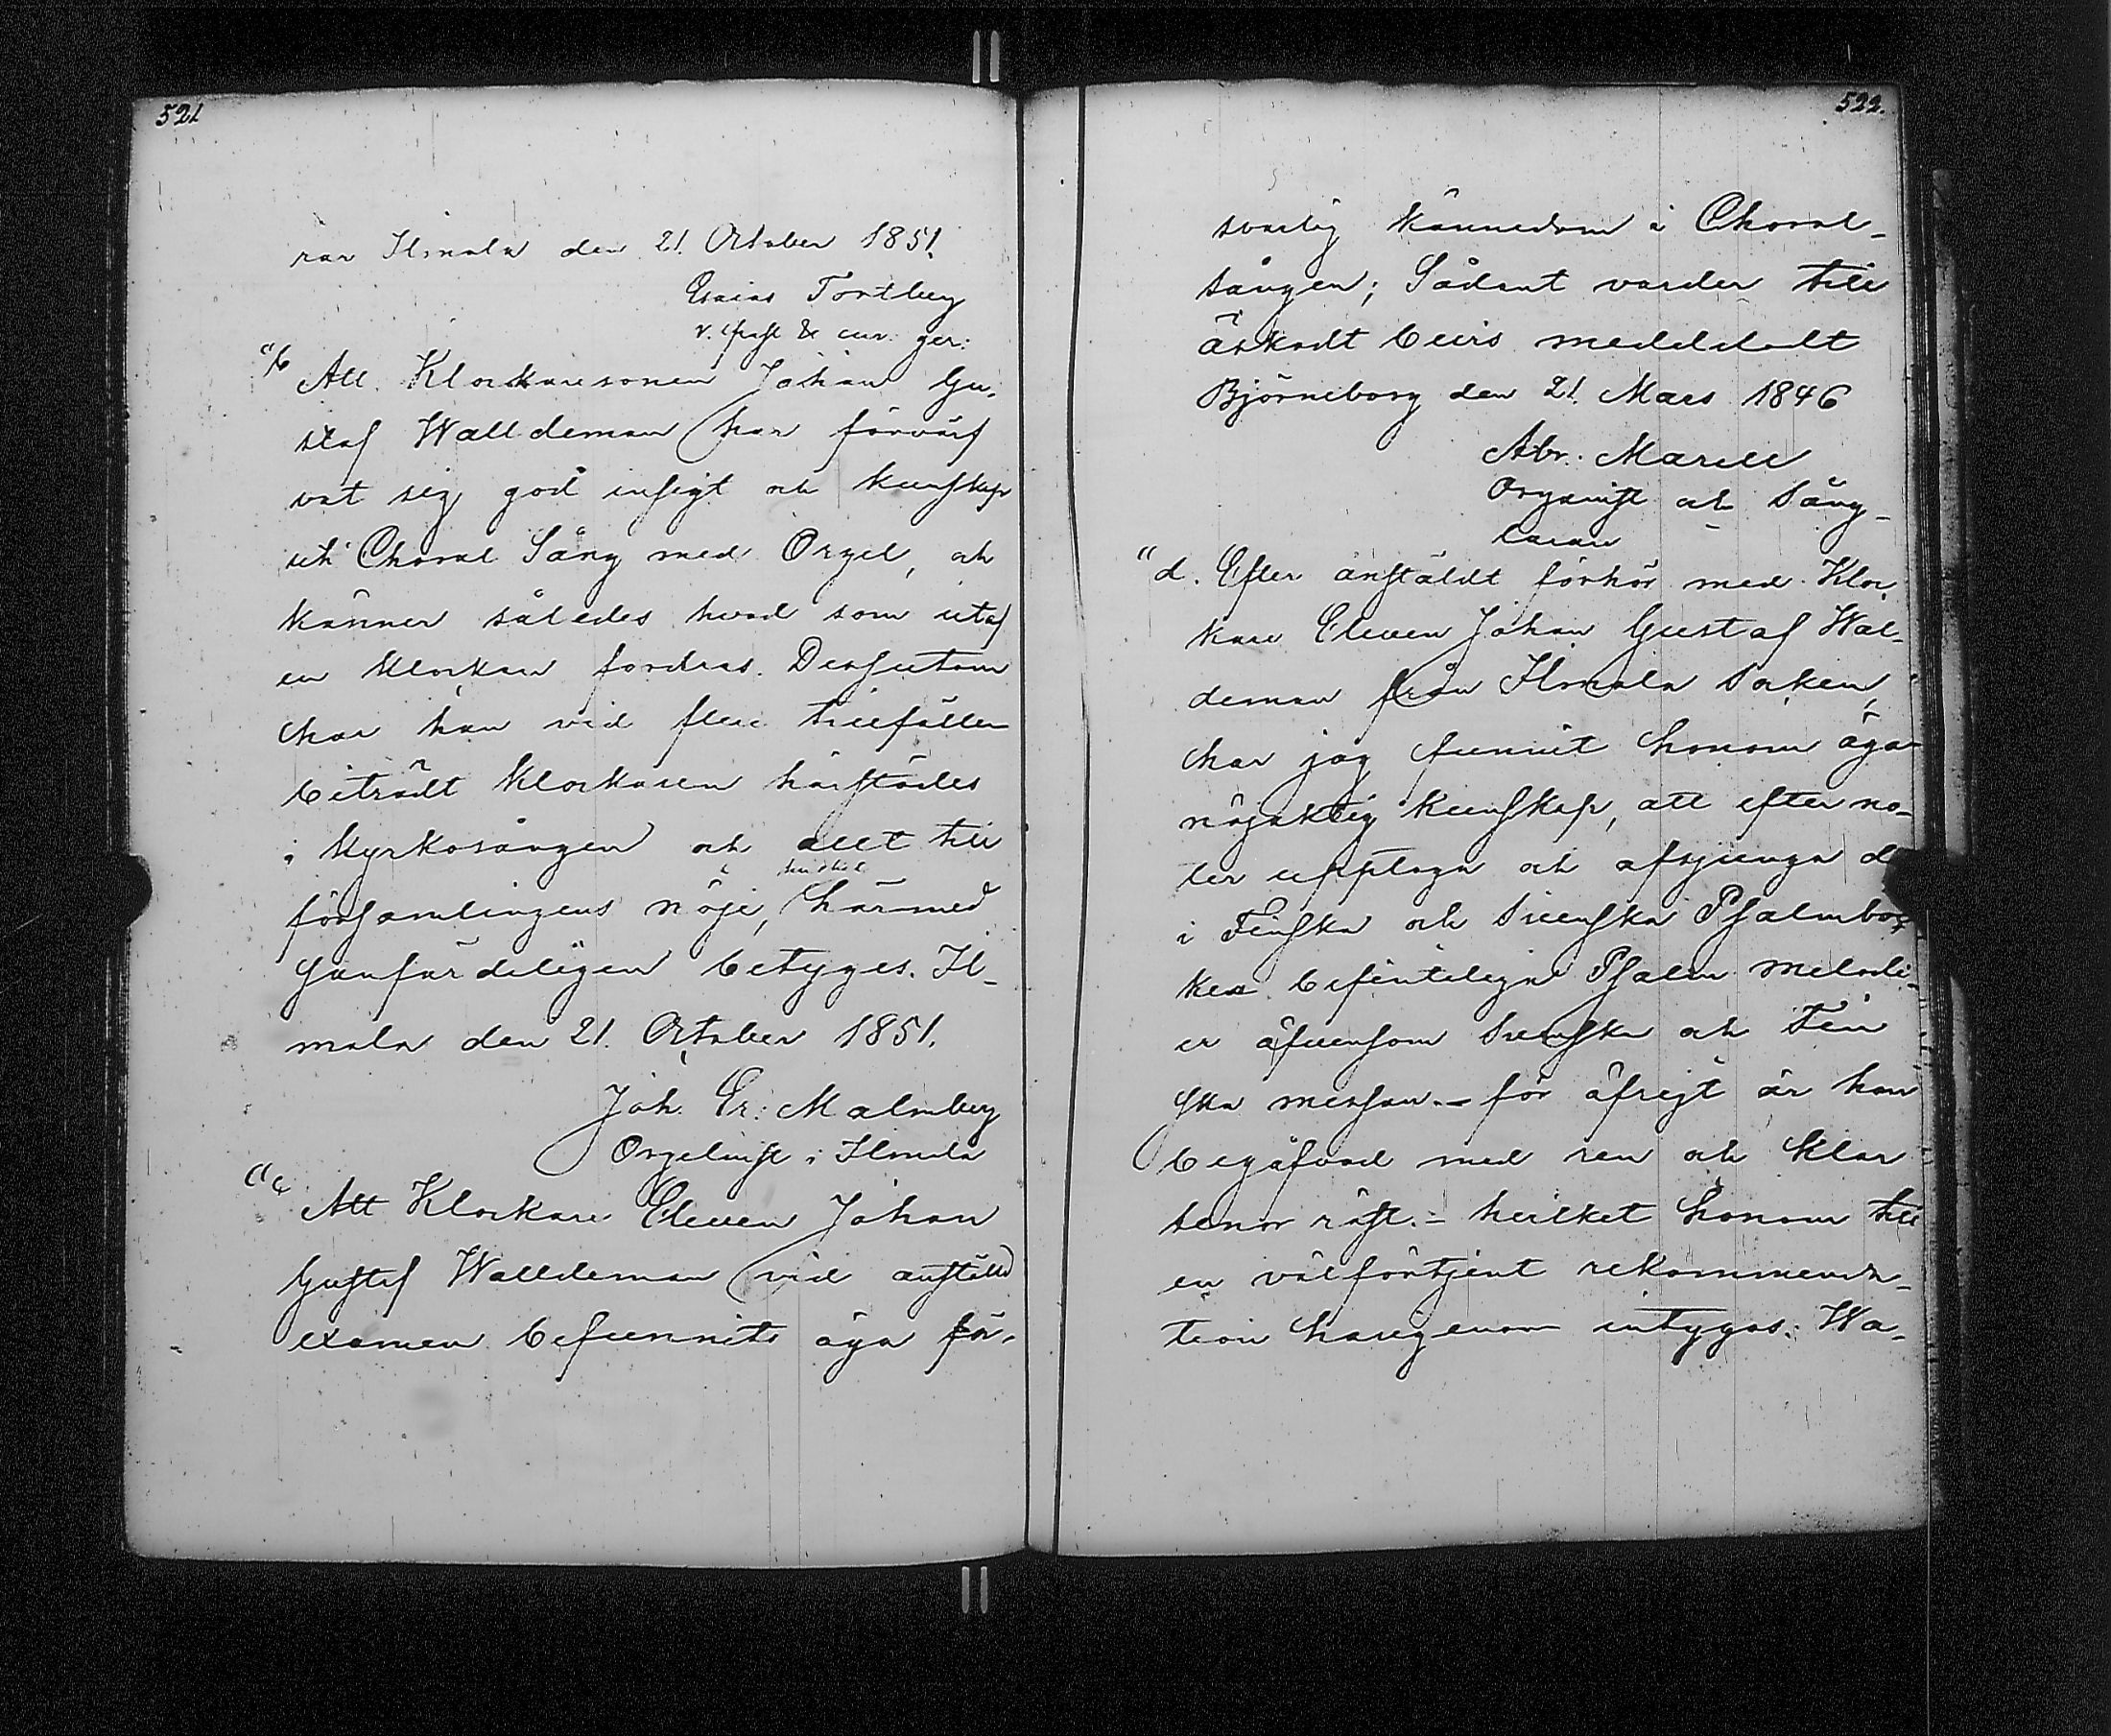 521
rar Ilmola den 21. October 1851.
Esaias Tortberg
v. past & cur. ger:
"b
Att Klockaresonen Johan Gu-
staf Walldeman har förvärf
vat sig god insigt och kunskap
uti Choral Sång med Orgel, och
känner således hvad som utaf
en klockare fordras. Dessutom
har han vid flere tillfällen
biträdt Klockaren härstädes
i kyrkosången och allt till
församlingens nöje, härmed
sanfärdeligen betyges. Il-
mola den 21. October 1851.
Joh. Er: Malmberg
Orgelnist i Ilmola
"c
Att Klockare Eleven Johan
Gustaf Walldeman vid anställd
examen befunnits äga för-
522.
svarlig kännedom i Choral-
sången; Sådant varder till
äskadt bevis meddeladt
Björneborg den 21. Mars 1846
Abr. Marell
Organist och Sång-
larare
"d. Efter anstäldt förhör med Kloc
kare Eleven Johan Gustaf Wal-
deman från Ilmola Socken,
har jag funnit honom äga
nöjaktig kunskap, att efter no-
ter upptaga och afsjunga de
i Finska och Svenska Psalmboc
ken befinteliga Psalm melodi-
er äfvensom Svenska och Fin
ska messan. – för öfrigt är han
begåfvad med ren och klar
tenor röst. – hvilket honom till
en välförtjent rekommenda-
tion harigenom intygas. Wa-